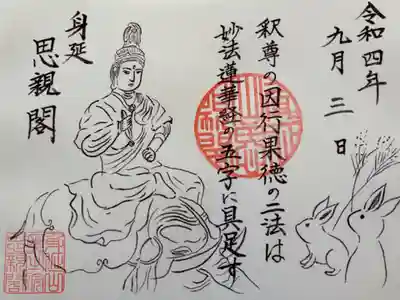 令和四年
九月三日
釈尊の因行果徳の二法は
妙法蓮華経の五字に具足す
身延
思親閣